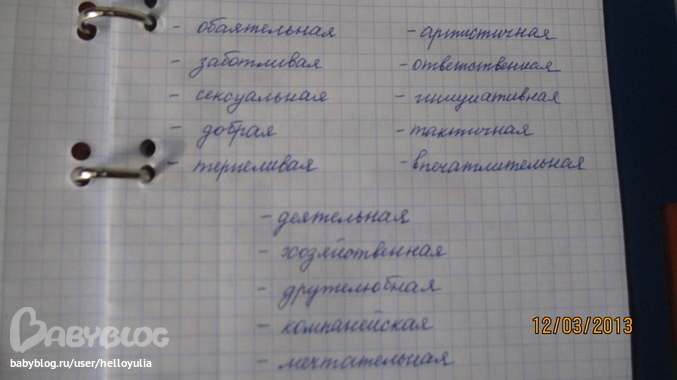 - обаятельная - артистичная
- заботливая - ответственная
- сексуальная - инициативная
- добрая - тактичная
- терпеливая - впечатлительная
- деятельная
- хозяйственная
- дружелюбная
- компанейская
- мечтательная
12/03/2013
BABYBLOG
babyblog.ru/user/helloyulia